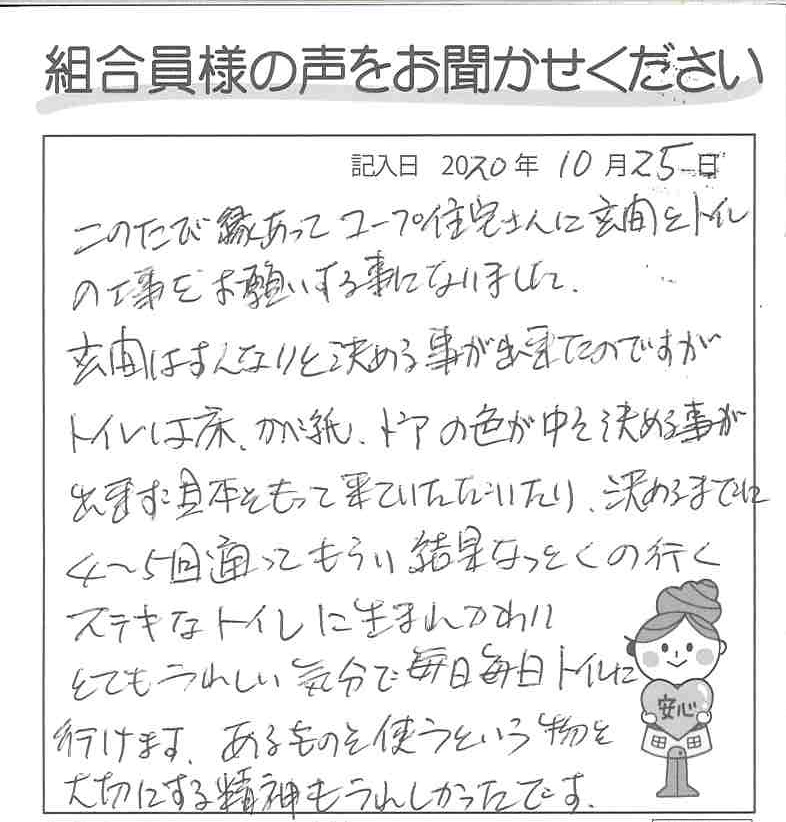 組合員様の声をお聞かせください
記入日 2020年 10月25日
このたび縁あってコープ住宅さんに玄関とトイレ
の工事をお願いする事になりました.
玄関はすんなりと決める事が出来たのですが
トイレは床、かべ紙、ドアの色が中々決める事が
出来ず見本をもって来ていただいたり、決めるまでに
4〜5回通ってもらい結果なっとくの行く
ステキなトイレに生まれかわり
とてもうれしい気分で毎日毎日トイレに
行けます、あるものを使うという物を
大切にする精神もうれしかったです.
安心